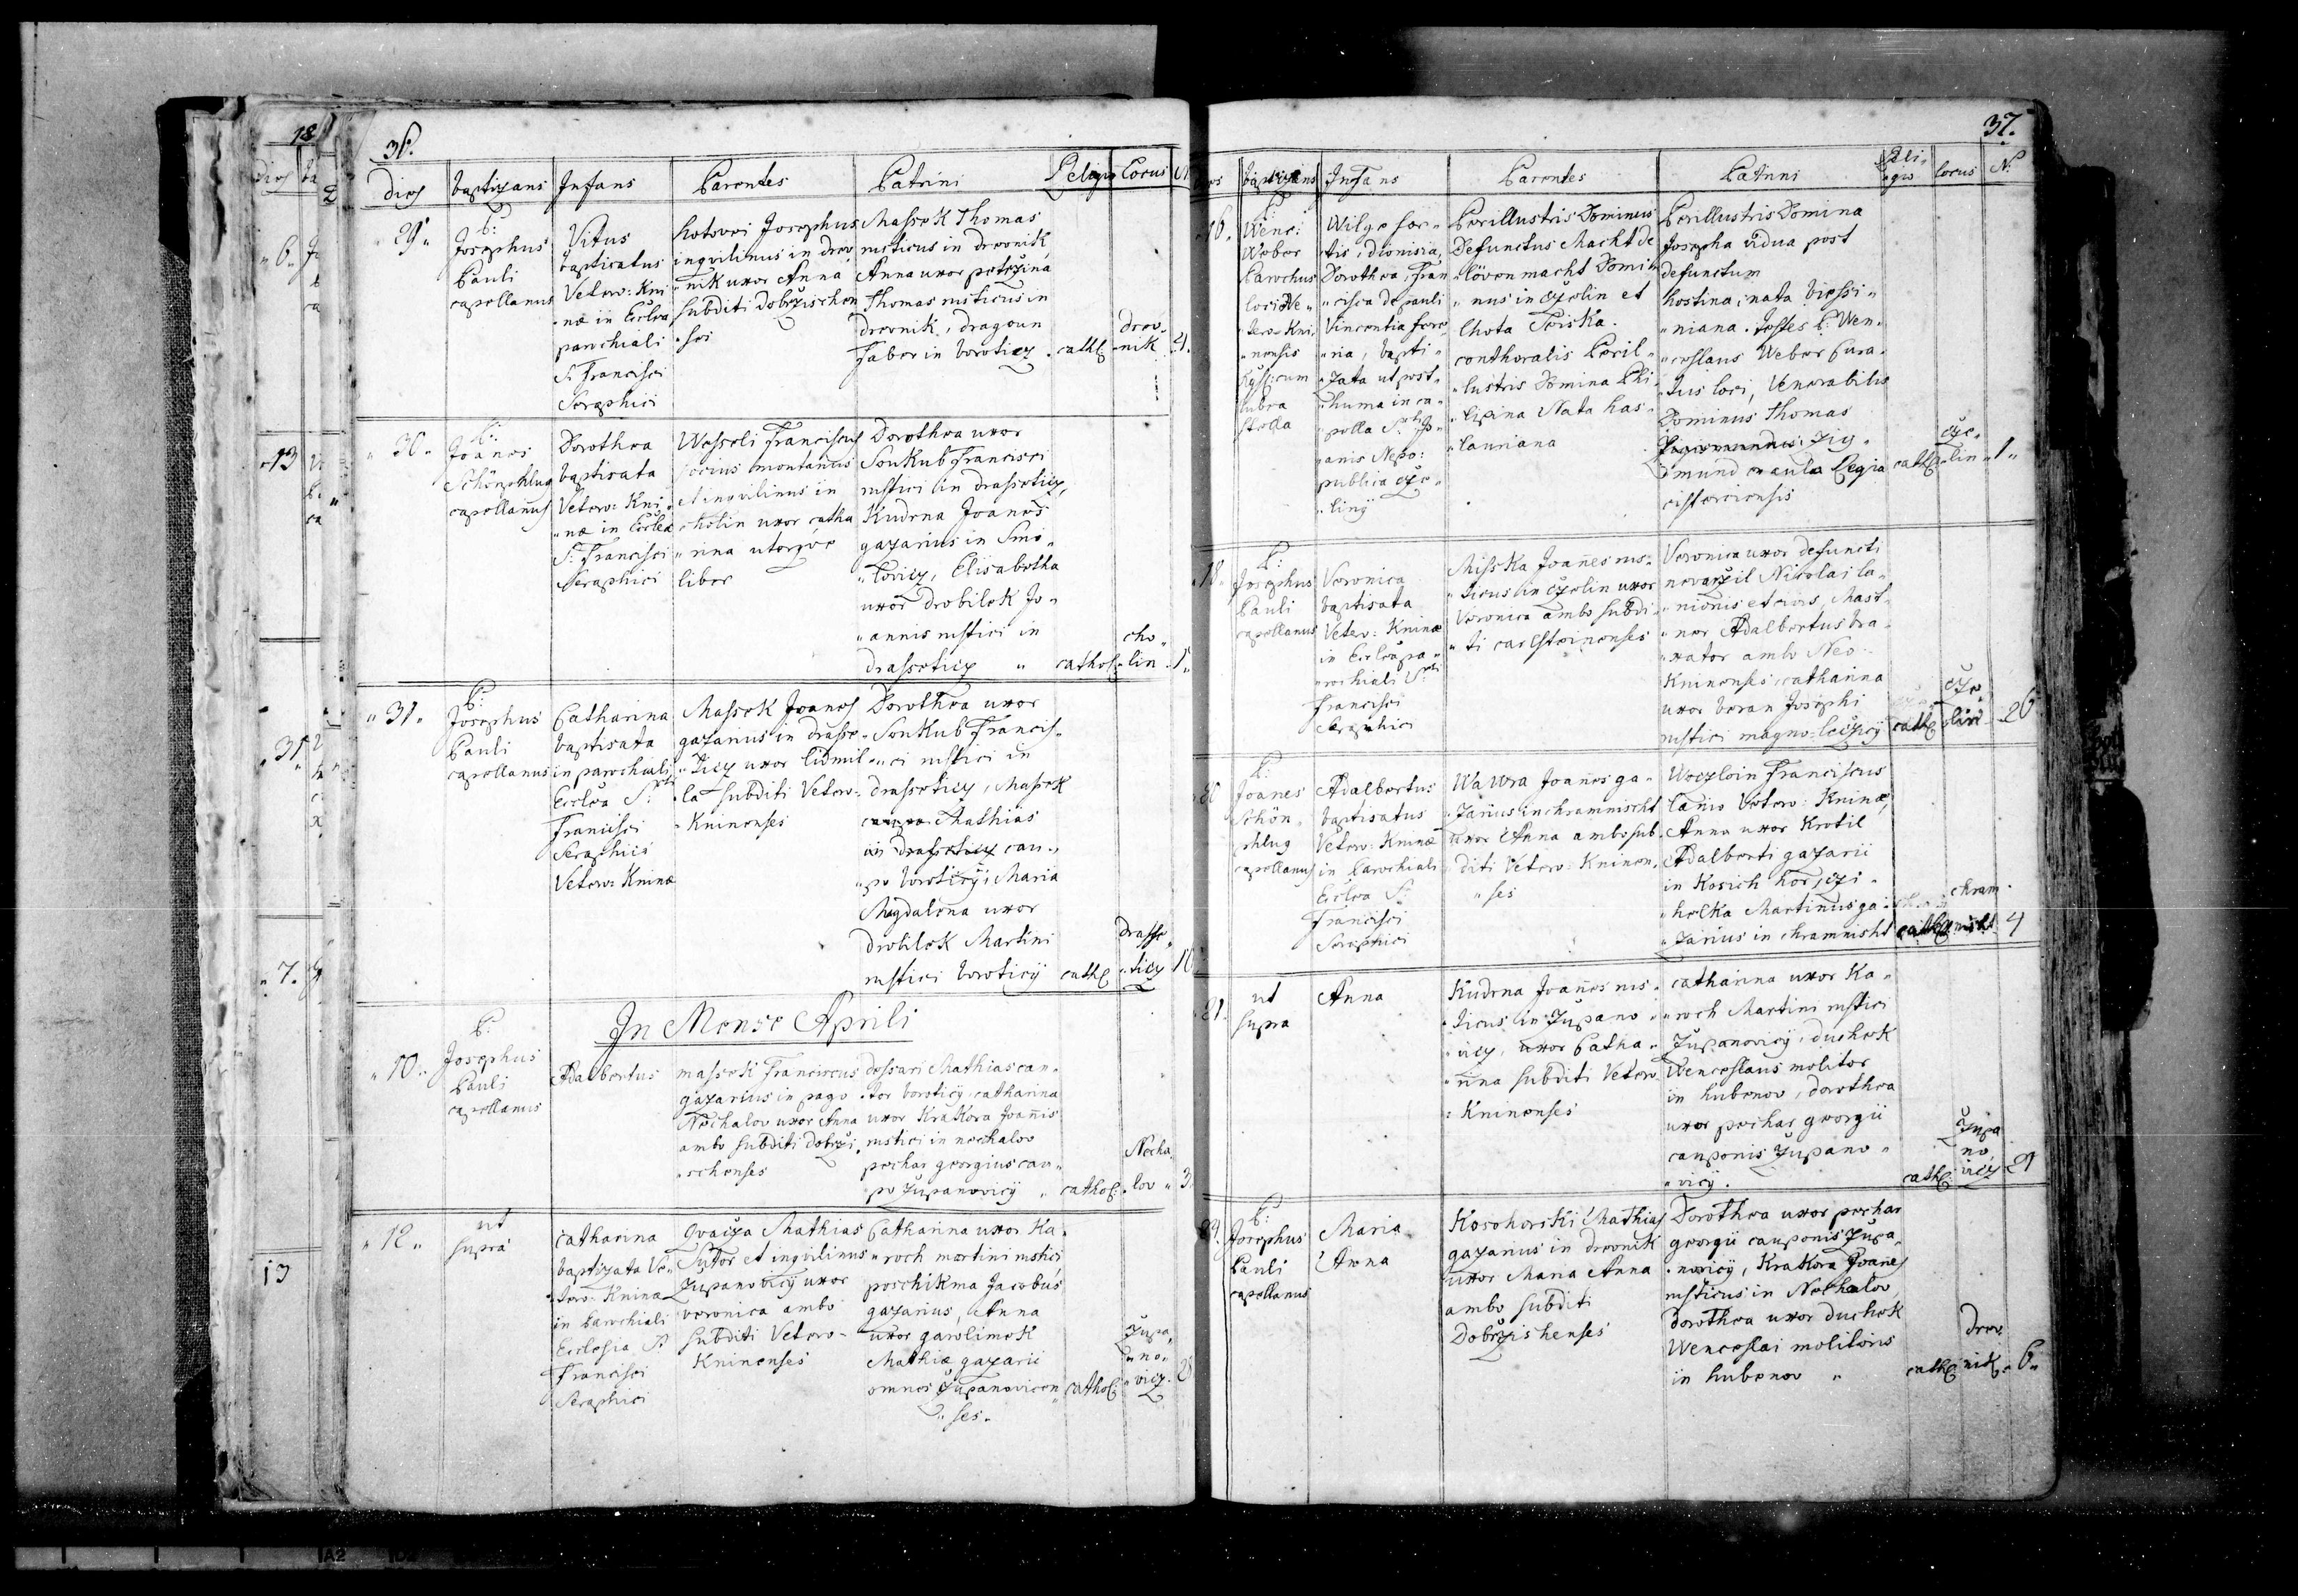 18
dies
6.
13
31.
7.
13
36.
dies baptizans Infans Parentes Patrini Religio Locus N
29
P:
Josephus
Pauli
capellanus
Vitus
baptisatus
Vetero: Kni
næ in Ecclea
parochiali
S: Francisci
Seraphici
Josephus
inqvilinus in drev
nik uxor Anna
subditi dobrzischen
ses
Massek Thomas
rusticus in drevnik
Anna uxor petrzina
Thomas rusticus in
drevnik, dragoun
faber in boroticz
cathl
drev
nik
4.
30
P:
Joanes
Schönphlug
capellanus
Dorothea
baptisata
Vetero: Kni
næ in Ecclea
S: Francisci
Seraphici
Wesseli Franciscus
socius montanus
et inqvilinus in
cholin uxor catha
rina uterqve
liber
Dorothea uxor
Soukub Francisci
rustici in drasseticz,
Kudrna Joanes
gazarius in Smi
lovicz, Elisabetha
uxor drobilek Jo
annis rustici in
drasseticz
cathol
cho
lin
1
31
P:
Josephus
Pauli
capellanus
Catharina
baptisata
in parochiali
Ecclea S:
Francisci
Seraphici
Vetero: Kninæ
Massek Joanes
gazarius in drasse
ticz uxor lidmil
la subditi Vetero
Kninenses
Dorothea uxor
Soukub Francis
ci rustici in
drasseticz, Massek
Mathias
in drasseticz cau
po boroticij, Maria
Magdalena uxor
drobilek Martini
rustici boroticij
cathl
drasse
ticz
10
In Mense Aprili
10
P:
Josephus
Pauli
capellanus
Adalbertus
massek Franciscus
gazarius in pago
Nechalov uxor Anna
ambo subditi dobrzi
schenses
dessari Mathias can
tor boroticij, catharina
uxor Krakora Joanis
rustici in nechalov
pechar georgius cau
po Zupanovicij
cathol:
Necha
lov
3
12
ut
supra
catharina
baptizata Ve
tero: Kninæ
in Parochiali
Ecclesia S:
Francisci
Seraphici
Qvaiza Mathias
Sutor et inqvilinus
Zupanovicij uxor
veronica ambo
subditi Vetero
Kninenses
Catharina uxor Ka
roch martini rustici,
poschikma Jacobus
gazarius, Anna
uxor garolimek
Mathiæ gazarii
omnes Zupanovicen
ses.
cathol:
Zupa
no
vicz
28
37.
baptizans Infans Parentes Patrini Reli
gio locus N:
16.
P
Wenc:
Weber
Parochus
loci Ve
tero Kni
nensis
cum
libera
stolla
Wilge for
tis, dionisia,
Dorothea, Fran
cisca de pauli
Vincentia fere
ria, bapti
zata ut post
huma in ca
pella S: Jo
anis Nepo:
publica cze
linij
Perillustris Dominus
Defunctus Macht de
Lövenmacht Domi
nus in Czelin et
Lhota
conthoralis Peril
lustris Domina Phi
lipina Nata Has
lauriana
Perillustris Domina
Josepha vidua post
defunctum
hostina, nata biessi
niana. Testes P: Wen
ceslaus Weber Cura
tus loci, Venerabilis
Dominus Thomas
Zig
mund ex aula Regia
cisterciensis
cathl
cze
lin
1
18
P:
Josephus
Pauli
capellanus
Veronica
baptisata
Vetero: Kninæ
in Ecclea pa
rochiali S:
Francisci
Seraphici
Misska Joanes rus
ticus in Czelin uxor
Veronica ambo subdi
ti carlsteinenses
Veronica uxor defuncti
novarzil Nicolai la
nionis et civis, Mast
ner Adalbertus bra
xator ambo Neo
Kninenses, catharina
uxor beran Josephi
rustici magno-lecicij
cathl
cze
lin
26
20
P:
Joanes
Schön
phlug
capellanus
Adalbertus
baptisatus
Vetero: Kninæ
in Parochiali
Ecclea S:
Francisci
Seraphici
Wawra Joanes ga
zarius in chramnischt
uxor Anna ambo sub
diti Vetero: Kninen
ses
Woczloin Franciscus
lanio Vetero: Kninæ,
Anna uxor Krotil
Adalberti gazarii
in Kosich hor, czi
helka Martinus ga
zarius in chramnischt
cathl
chram
nischt
4
21.
ut
supra
Anna
Kudrna Joanes rus
ticus in Zupano
vicz, uxor Catha
rina subditi Vetero
Kninenses
catharina uxor Ka
roch Martini rustici
Zupanovicij, duchek
Wenceslaus molitor
in hubenov, dorothea
uxor pechar georgii
cauponis Zupano
vicij.
cathl:
Zupa
no
vicz
29
29.
P:
Josephus
Pauli
capellanus
Maria
Anna
Kosohorski Mathias
gazarius in drevnik
uxor Maria Anna
ambo subditi
Dobrzishenses
Dorothea uxor pechar
georgii cauponis Zupa
novicij, Krakora Joanes
rusticus in Nechalov,
Dorothea uxor duchek
Wenceslai molitoris
in hubenov
cathl
drev
nik
6